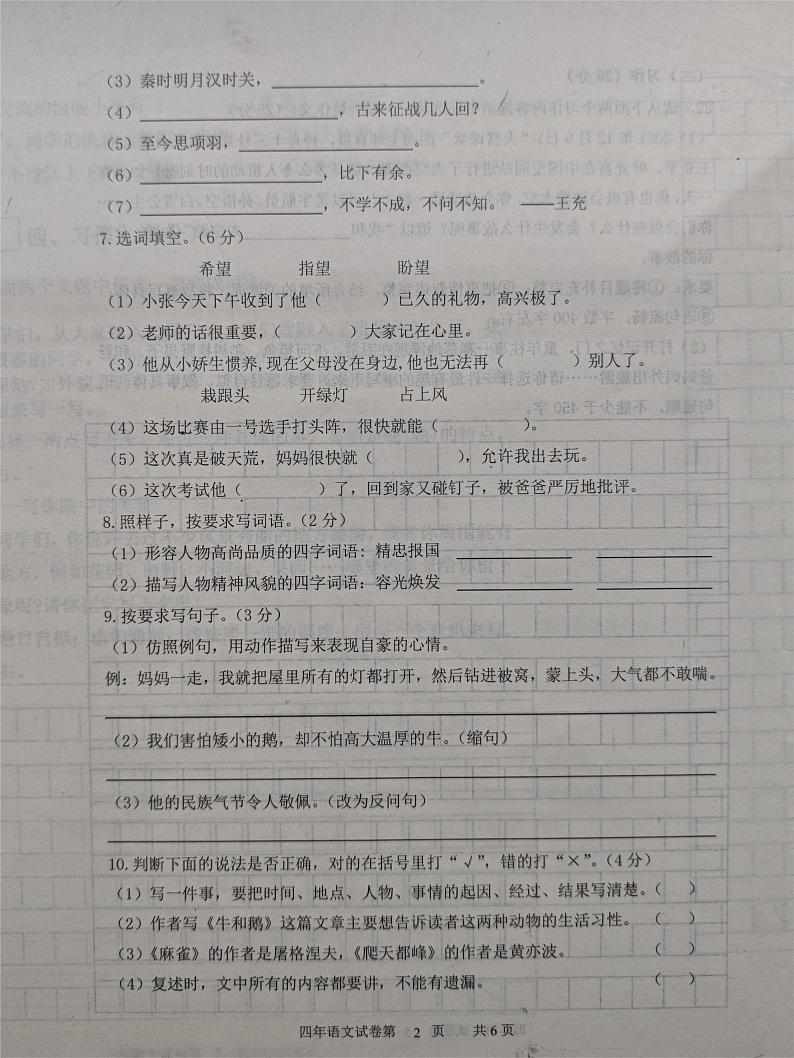 (3）秦时明月汉时关，____________________。
(4）____________________，古来征战几人回？
(5）至今思项羽，____________________。
(6）____________________，比下有余。
(7）____________________，不学不成，不问不知。 ——王充
7.选词填空。(6 分)
希望 指望 盼望
(1）小张今天下午收到了他（ ）已久的礼物，高兴极了。
(2）老师的话很重要，（ ）大家记在心里。
(3）他从小娇生惯养,现在父母没在身边,他也无法再（ ）别人了。
栽跟头 开绿灯 占上风
(4）这场比赛由一号选手打头阵，很快就能（ ）。
(5）这次真是破天荒，妈妈很快就（ ），允许我出去玩。
(6）这次考试他（ ）了，回到家又碰钉子，被爸爸严厉地批评。
8.照样子，按要求写词语。(2 分)
(1）形容人物高尚品质的四字词语：精忠报国 __________ __________
(2）描写人物精神风貌的四字词语：容光焕发 __________ __________
9.按要求写句子。(3 分)
(1）仿照例句，用动作描写来表现自豪的心情。
例：妈妈一走，我就把屋里所有的灯都打开，然后钻进被窝，蒙上头，大气都不敢喘。
(2）我们害怕矮小的鹅，却不怕高大温厚的牛。(缩句)
(3）他的民族气节令人敬佩。(改为反问句)
10.判断下面的说法是否正确，对的在括号里打“√”，错的打“×”。(4 分)
(1）写一件事，要把时间、地点、人物、事情的起因、经过、结果写清楚。（ ）
(2）作者写《牛和鹅》这篇文章主要想告诉读者这两种动物的生活习性。（ ）
(3）《麻雀》的作者是屠格涅夫，《爬天都峰》的作者是黄亦波。（ ）
(4）复述时，文中所有的内容都要讲，不能有遗漏。（ ）
四年语文试卷第 2 页 共 6 页